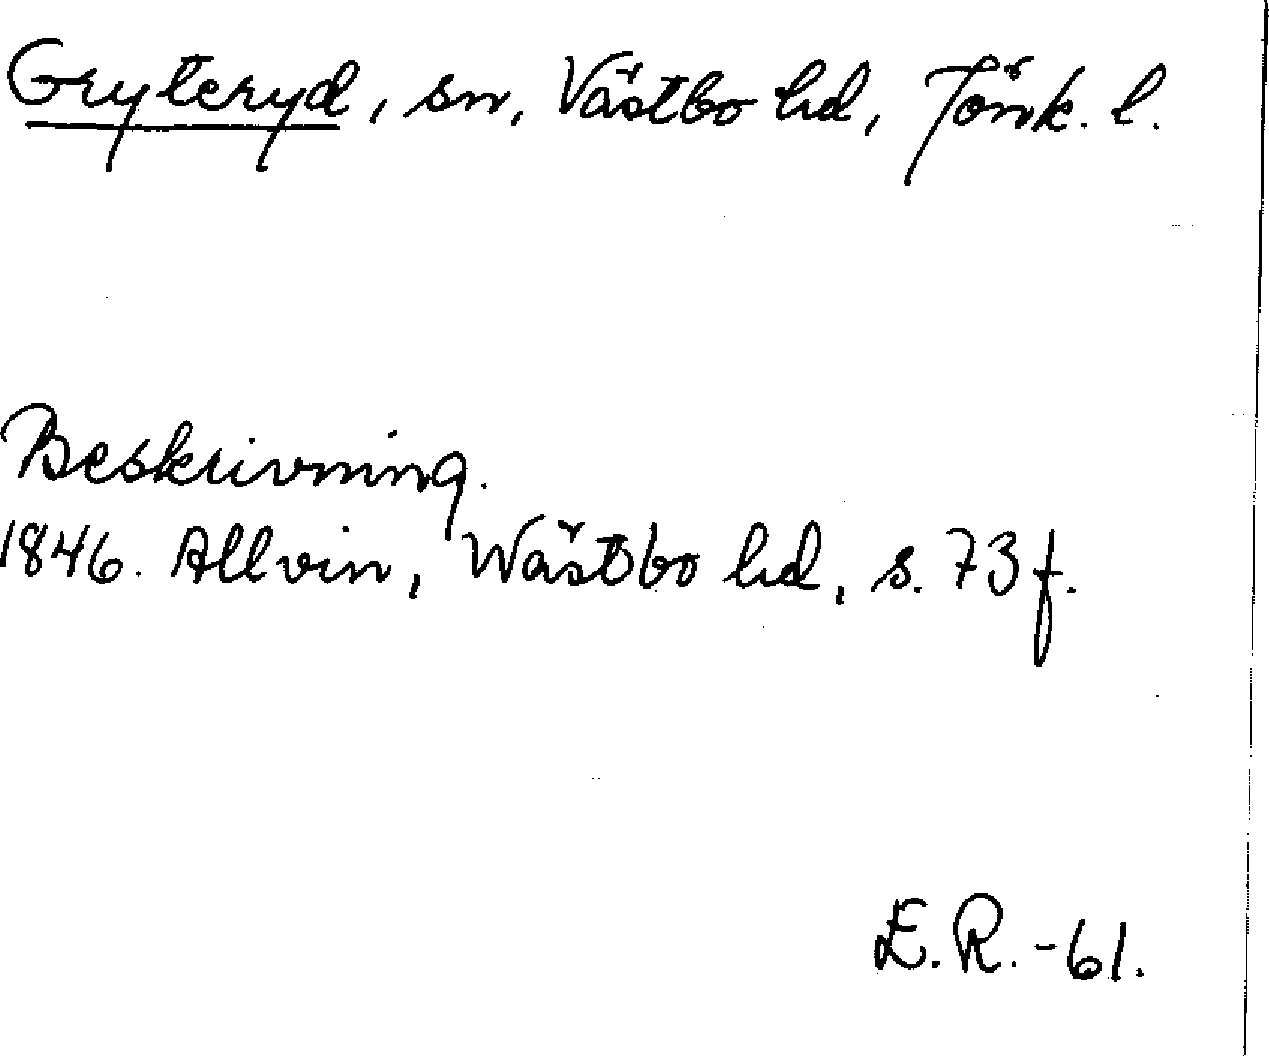 Gryteryd, sn, Västbo hd, Jönk. l.
Beskrivning.
1846. Allvin, Wästbo hd, s. 73 f.
E.R.-61.